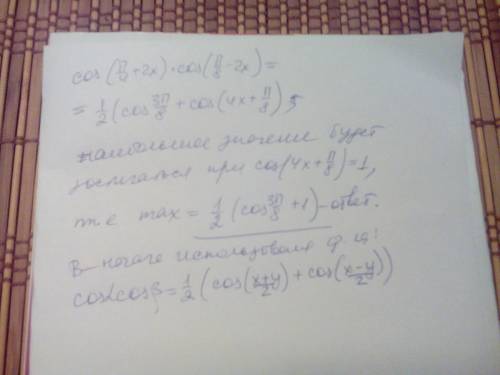 cos(π/4+2x)·cos(π/8-2x)=
=1/2(cos 3π/8 + cos(4x+π/8)),
наибольшое значение будет
достигаться при cos(4x+π/8)=1,
т.е max = 1/2(cos 3π/8+1) - ответ.
В начале использовали ф-ла:
cosαcosβ=1/2(cos(x+y/2)+cos(x-y/2))